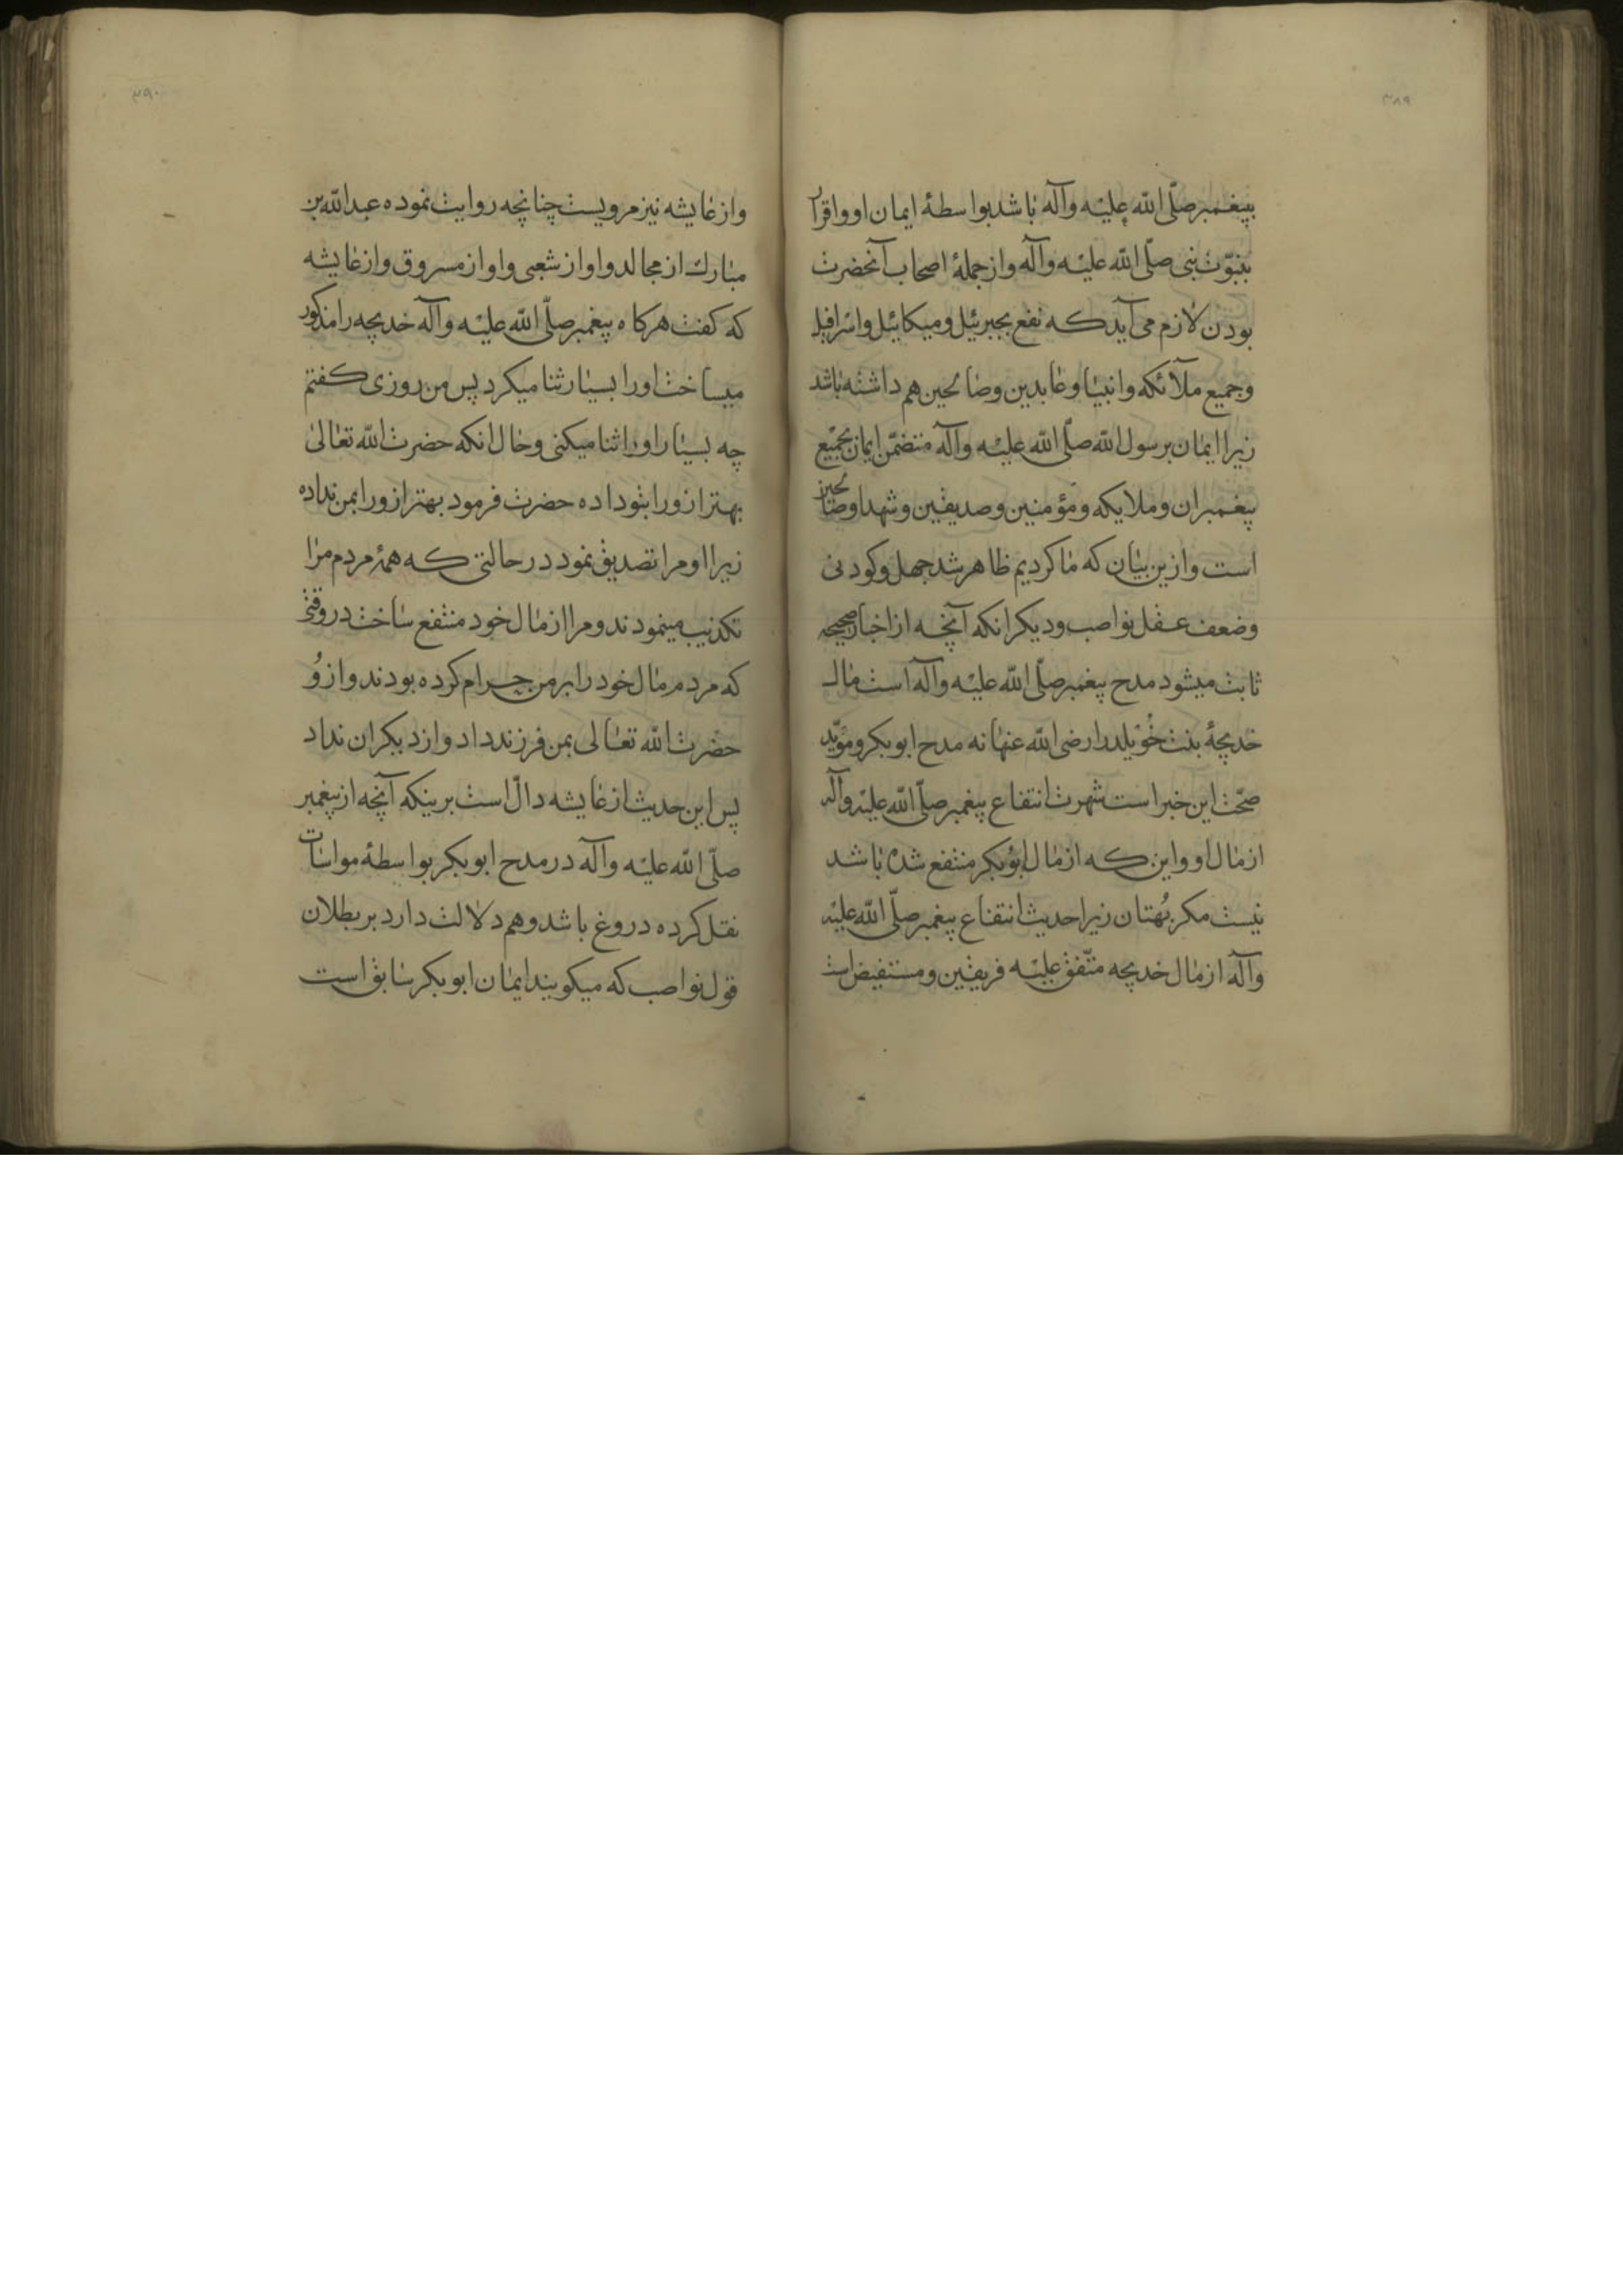 ۳۸۹
بپیغمبر صلّی اللّه علیه وآله باشد بواسطهٔ ایمان او واقرار
بنبوّت نبی صلّی اللّه علیه وآله واز جملهٔ اصحاب آنحضرت
بودن لازم می آید که نفع بجبرئیل ومیکائیل واسرافیل
وجمیع ملآئکه وانبیا وعابدین وصالحین هم داشته باشد
زیرا ایمان برسول اللّه صلّی اللّه علیه وآله متضمّن ایمان بجمیع
پیغمبران وملایکه ومؤمنین وصدیقین وشهدا وصالحین
است وازین بیان که ما کردیم ظاهر شد جهل وکودنی
وضعف عقل نواصب ودیکر انکه آنچه از اخبار صحیحه
ثابت میشود مدح پیغمبر صلّی اللّه علیه وآله است مال
خدیجهٔ بنت خُوَیلد را رضی اللّه عنها نه مدح ابوبکر ومؤیّد
صحّت این خبر است شهرت انتفاع پیغمبر صلّی اللّه علیه وآله
از مال او واین که از مال ابوبکر منتفع شده باشد
نیست مکر بُهتان زیرا حدیث انتفاع پیغمبر صلّی اللّه علیه
وآله از مال خدیجه متّفق علیه فریقین ومستفیض است
۳۹۰
واز عایشه نیز مرویست چنانچه روایت نموده عبداللّه بن
مبارک از مجالد واو از شعبی واو از مسروق واز عایشه
که کفت هرکاه پیغمبر صلّی اللّه علیه وآله خدیجه را مذکور
میساخت اورا بسیار ثنا میکرد پس من روزی کفتم
چه بسیار اورا ثنا میکنی وحال انکه حضرت اللّه تعالی
بهتر ازورا بتو داده حضرت فرمود بهتر ازورا بمن نداده
زیرا او مرا تصدیق نمود در حالتی که همهٔ مردم مرا
تکذیب مینمودند ومرا از مال خود منتفع ساخت در وقتی
که مردم مال خود را بر من حرام کرده بودند وازوُ
حضرت اللّه تعالی بمن فرزند داد واز دیکران نداد
پس این حدیث از عایشه دالّ است برینکه آنچه از پیغمبر
صلّی اللّه علیه وآله در مدح ابوبکر بواسطهٔ مواسات
نقل کرده دروغ باشد وهم دلالت دارد بر بطلان
قول نواصب که میکویند ایمان ابوبکر سابق است